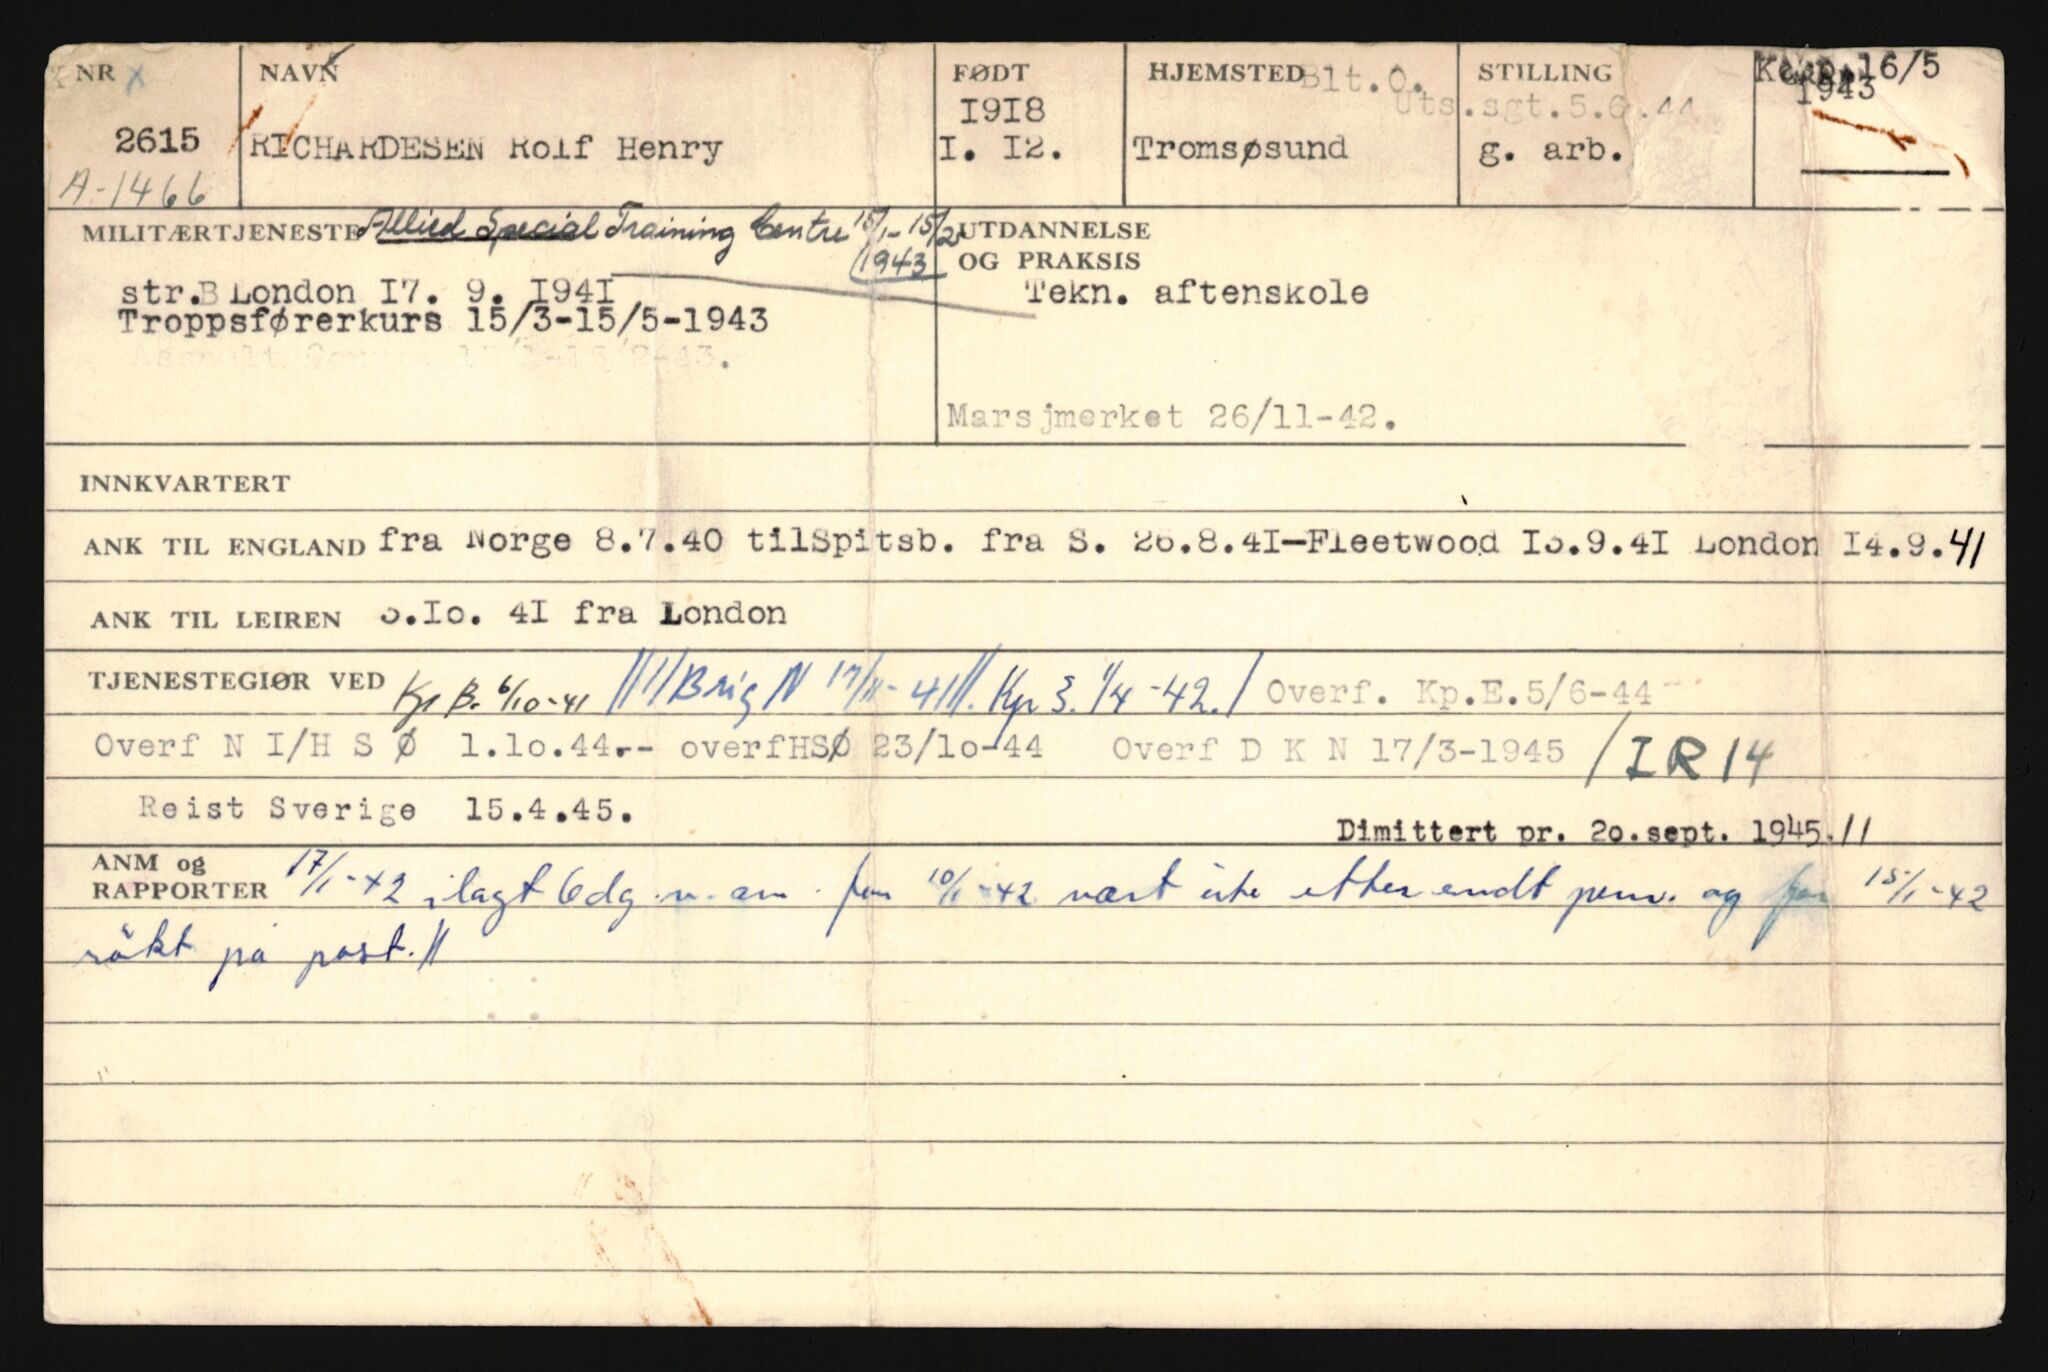 NR x NAVN FØDT HJEMSTED Blt.O. STILLING 16/5
1918 Uts.sgt.5.6.44 1943
2615 RICHARDESEN Rolf Henry I. I2. Tromsøsund g. arb.
A-1466
MILITÆRTJENESTE Allied Special Training Centre 15/1-15/2 1943
str.B London I7. 9. I94I
Troppsførerkurs 15/3-15/5-1943
UTDANNELSE
OG PRAKSIS
Tekn. aftenskole
Marsjmerket 26/11-42.
INNKVARTERT
ANK TIL ENGLAND fra Norge 8.7.40 tilSpitsb. fra S. 26.8.4I-Fleetwood I3.9.4I London I4.9.41
ANK TIL LEIREN 3.Io. 4I fra London
TJENESTEGIØR VED Kp B. 6/10-41 //1/Brig N 17/11-41//. Kp 3. 1/4-42./ Overf. Kp.E.5/6-44
Overf N I/H S Ø 1.1o.44.-- overfHSØ 23/1o-44 Overf D K N 17/3-1945 /IR14
Reist Sverige 15.4.45.
Dimittert pr. 2o.sept. 1945.//
ANM og
RAPPORTER 17/1-42 ilagt 6 dg. v. am. for 10/1-42 vært ute etter endt perm. og for 15/1-42
rökt på post.//